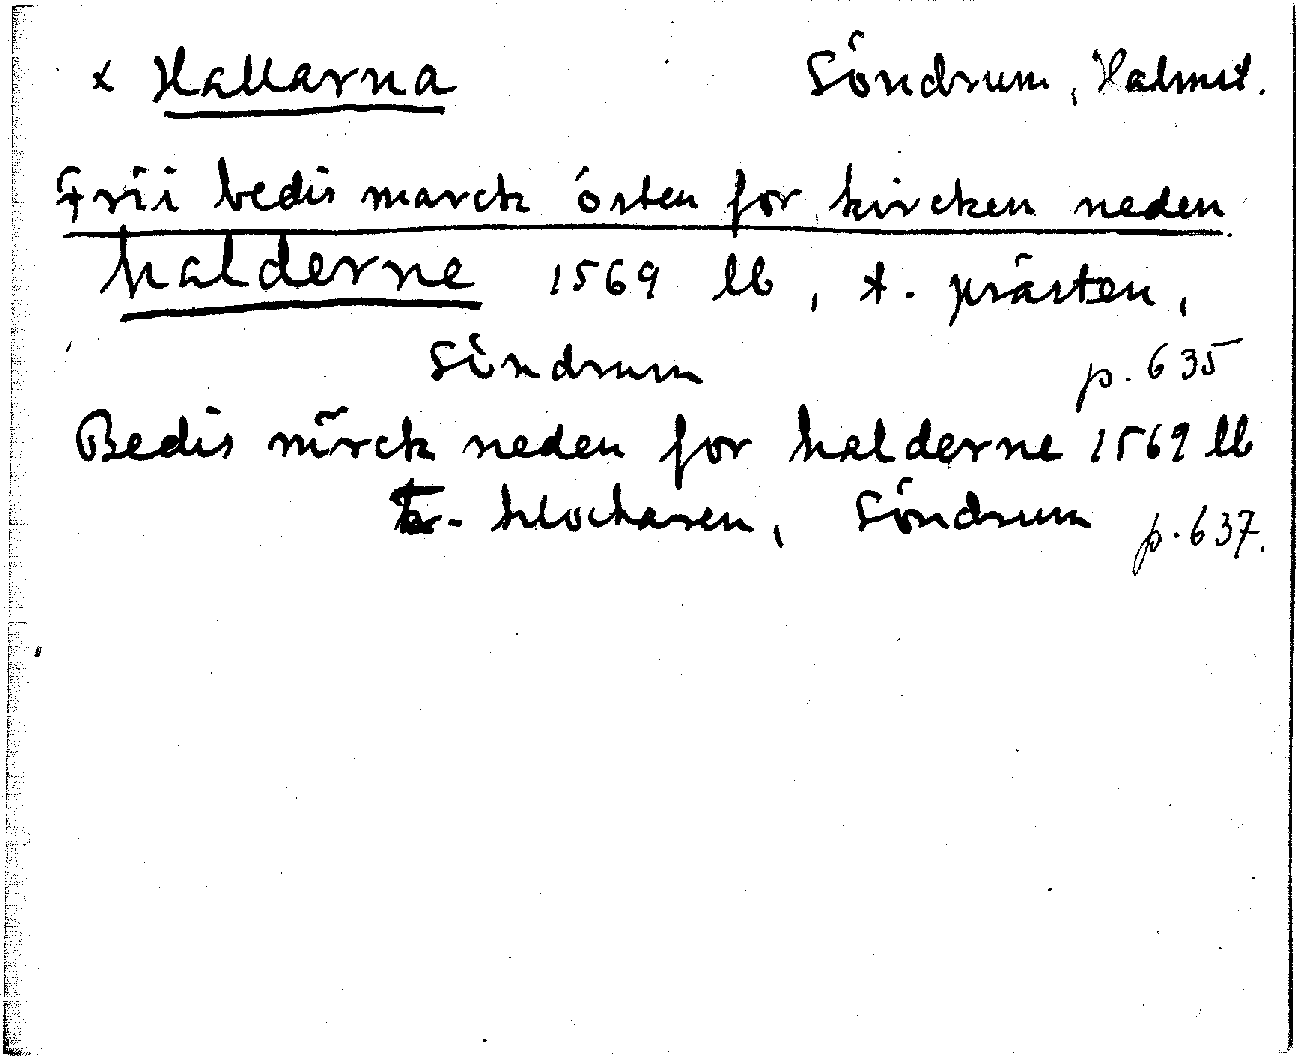 x Hallarna Söndrum, Halmst.
Frii bedis marck östen for kircken neden
halderne 1569 lb, t. prästen,
Söndrum p. 635
Bedis mrck neden for halderne 1569 lb
t. klockaren, Söndrum p. 637.